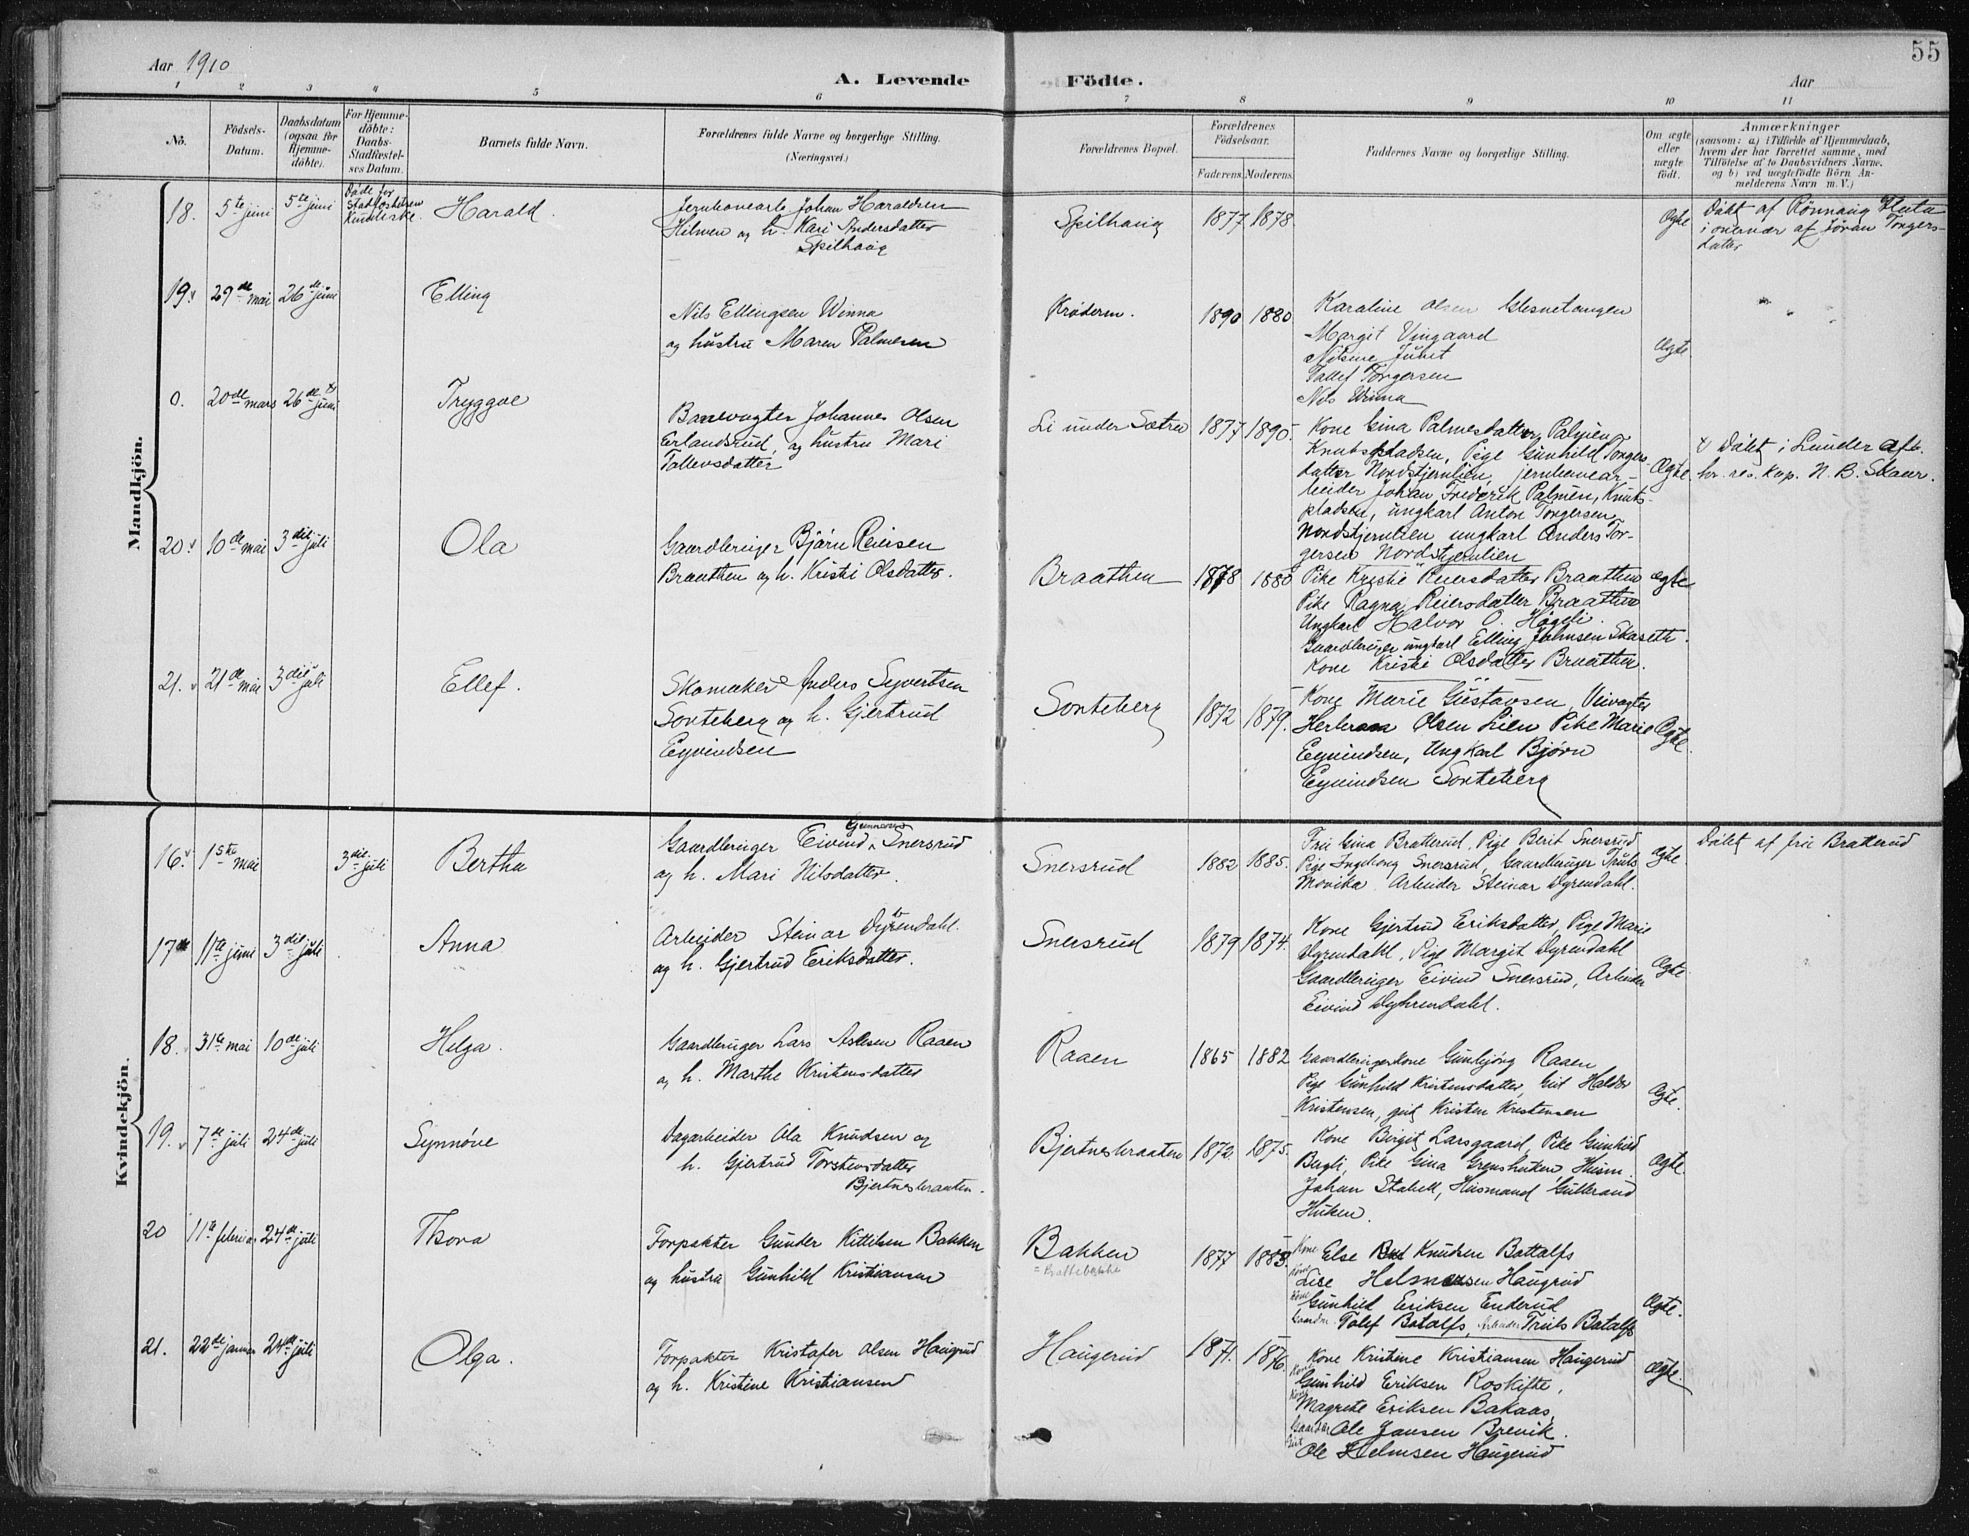 55
Aar 1910
A. Levende Födte.
Aar
1 2 3 4 5 6 7 8 9 10 11
No.
Födsels-
Datum.
Daabsdatum
(ogsaa for
Hjemme-
döbte).
For Hjemme-
döbte:
Daabs-
Stadfæstel-
ses Datum.
Barnets fulde Navn.
Forældrenes fulde Navne og borgerlige Stilling.
(Næringsvei.)
Forældrenes Bopæl.
Forældrenes
Födselsaar.
Faderens. Moderens.
Faddernes Navne og borgerlige Stilling.
Om ægte
eller
uægte
födt.
Anmærkninger
(saasom: a) i Tilfælde af Hjemmedaab,
hvem der har forrettet samme, med
Tilföielse af to Daabsvidners Navne,
og b) ved uægtefödte Börn An-
melderens Navn m. V.)
Mandkjön.
18. 5te juni 5te juni
Döde før
stadfæstelsen
Kunderske.
Harald.
Jernbanearb. Johan Haraldsen
Hilmen og h. Kari Andersdatter
Spilhaug
Spilhaug 1877 1878.
Ægte
Döbt af Rönnaug
i nærvær af Jöran Torgers-
datter
19. 29de mai 26de juni
Elling
Nils Ellingsen Winna
og hustru Maren Palmesen
Krøderen. 1890 1880
Karoline Olsen Glesnetangen
Margit Vingaard
Nilsine Juvet
Tallef Torgersen
Nils Winna
Ægte
0. 20de mars 26de juni x
Tryggve
Banevogter Johannes Olsen
Erlandsrud, og hustru Mari
Tollevsdatter
Li under Sætra 1877 1890.
Kone Gina Palmesdatter Palmen
Knutspladsen, Pige Gunhild Torgers-
datter Nordstjernlien, jernbanear-
beider Johan Frederik Palmen, Knuts-
pladsen, ungkarl Anton Torgersen
Nordstjernlien ungkarl Anders Tor-
gersen Nordstjernlien
Ægte.
x Döbt i Lunder af b.
hr. res. kap. N. B. Skaar.
20. 10de mai 3die juli
Ola
Gaardbruger Bjørn Reiersen
Braathen og h. Kristi Olsdatter.
Braathen 1878 1880
Pike Kristie Reiersdatter Braathen
Pike Ragna Reiersdatter Braathen
Ungkarl Halvor O. Högeli.
Gaardbruger ungkarl Elling Johnsen Skaseth.
Kone Kristi Olsdatter Braathen.
Ægte
21. 21de mai 3die juli
Ellef.
Skomaker Anders Syvertsen
Sonteberg og h. Gjertrud
Eyvindsen
Sonteberg 1872 1879.
Kone Marie Gustavsen, Veivogter
Herbran Olsen Lien Pike Marie
Eyvindsen, Ungkarl Bjørn
Eyvindsen Sonteberg
Ægte.
Kvindekjön.
16. 1ste mai 3die juli
Bertha
Gunnarsen
Gaardbruger Eivind Snersrud
og h. Mari Nilsdatter.
Snersrud 1882 1885.
Fru Gina Bratterud, Pige Berit Snersrud
Pige Ingeborg Snersrud, Gaardbruger Truls
Movika. Arbeider Steinar Dyrendahl.
Ægte
Döbt af fru Bratterud
17de 11te juni 3die juli
Anna
Arbeider Steinar Dyrendahl.
og h. Gjertrud Eriksdatter.
Snersrud 1879 1874.
Kone Gjertrud Eriksdatter, Pige Marie
Dyrendahl, Pige Margit Dyrendahl
Gaardbruger Eivind Snersrud, Arbeider
Eivind Dyhrendahl.
Ægte
18. 31te mai 10de juli
Helga.
Gaardbruger Lars Aslesen Raaen
og h. Marthe Kristensdatter
Raaen 1865 1882
Gaardbrugerkone Gunbjörg Raaen
Pige Gunhild Kristensdatter, Gut Halvor
Kristensen, gut Kristen Kristensen
Ægte.
19. 7de juli 24de juli
Synnöve
Dagarbeider Ola Knudsen og
h. Gjertrud Torstensdatter
Bjertnesbraaten.
Bjertnesbraaten 1872. 1875.
Kone Birgit Larsgaard, Pike Gunhild
Bugli, Pike Gina Grenshuken Husm.
Johan Stabek, Husmand Gulbrand
Huken.
Ægte.
20 11te februar 24de juli
Thora
Forpakter Gunder Kittilsen Bakken
og hustru Gunhild Kristiansen
Bakken
= Brattebakke
1877 1883.
Kone Else Knudsen Bottolfs
Kone Lise Helmersen Haugrud
Kone Gunhild Eriksen Enderud
Gaardm. Tolef Botolfs, Arbeider Truls Batalfs
Ægte.
21. 22de januar 24de juli
Olga.
Forpakter Kristofer Olsen Haugrud
og h. Kristine Kristiansen
Haugerud 1871. 1876.
Kone Kristine Kristiansen Haugerud
Kone Gunhild Eriksen Roskifte,
Kone Magrete Eriksen Bakaas,
Gaardbr. Ole Jansen Brevik.
Gut Ole Helmsen Haugerud
Ægte.